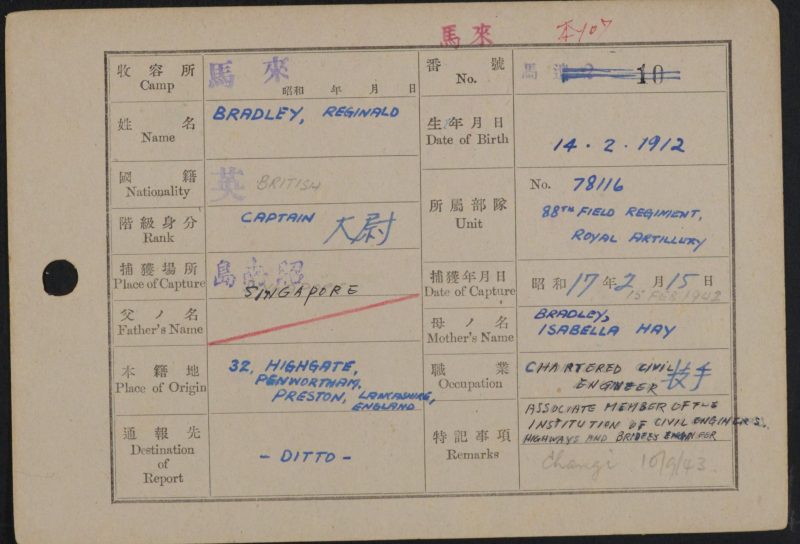 馬來
收容所
Camp
馬來
昭和 年 月 日
番號
No.
10
姓名
Name
BRADLEY, REGINALD
生年月日
Date of Birth
14 · 2 · 1912
國籍
Nationality
英 BRITISH
所屬部隊
Unit
No. 78116
88TH FIELD REGIMENT,
ROYAL ARTILLERY
階級身分
Rank
CAPTAIN 大尉
捕獲場所
Place of Capture
島南昭
SINGAPORE
捕獲年月日
Date of Capture
昭和 17 年 2 月 15 日
15 FEB 1942
父ノ名
Father's Name
母ノ名
Mother's Name
BRADLEY,
ISABELLA HAY
本籍地
Place of Origin
32, HIGHGATE,
PENWORTHAM,
PRESTON, LANCASHIRE,
ENGLAND
職業
Occupation
CHARTERED CIVIL
ENGINEER 技手
通報先
Destination
of
Report
- DITTO -
特記事項
Remarks
ASSOCIATE MEMBER OF THE
INSTITUTION OF CIVIL ENGINEERS.
HIGHWAYS AND BRIDGES ENGINEER
Changi 10/9/43.